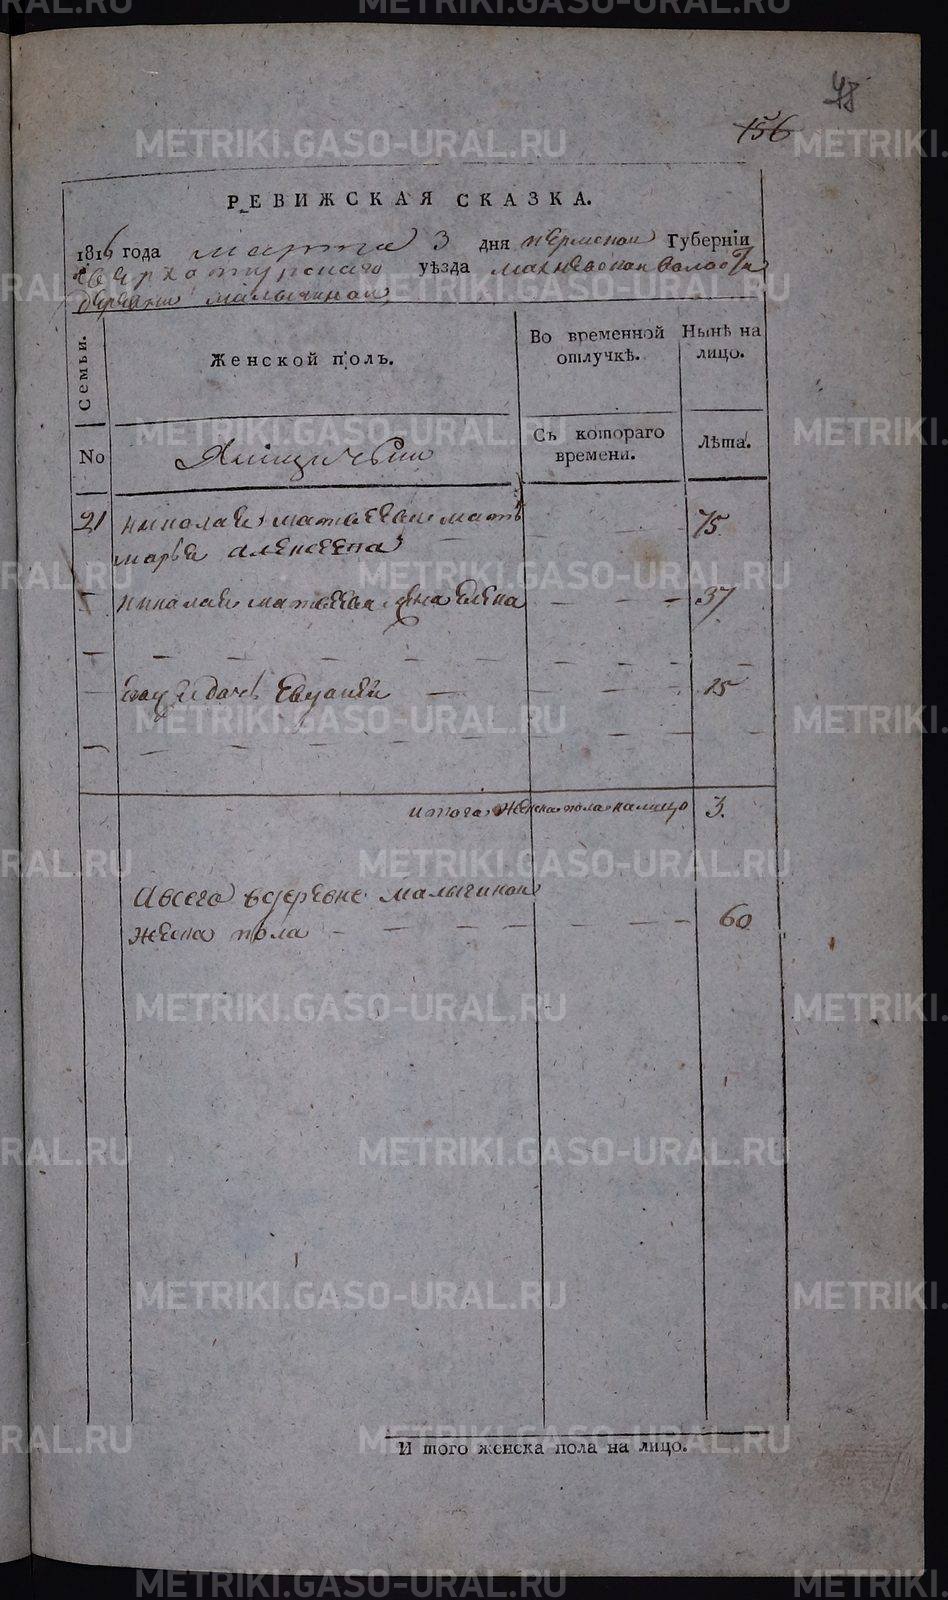 48
156
РЕВИЖСКАЯ СКАЗКА.
1816 года марта 3 дня пермской Губерніи
верхотурскаго уѣзда махневской волости
деревни малыгиной
Семьи.
Женской полъ.
Во временной отлучкѣ.
Нынѣ на лицо.
No
Ямщичьи
Съ котораго времени.
Лѣта.
21 николая матвеева мать
марья алексеева 75
николая матвеева жена елена 37
дочь 15
итого женска пола налицо 3.
А всего вдеревне малыгиной
женска пола 60
И того женска пола на лицо.
METRIKI.GASO-URAL.RU